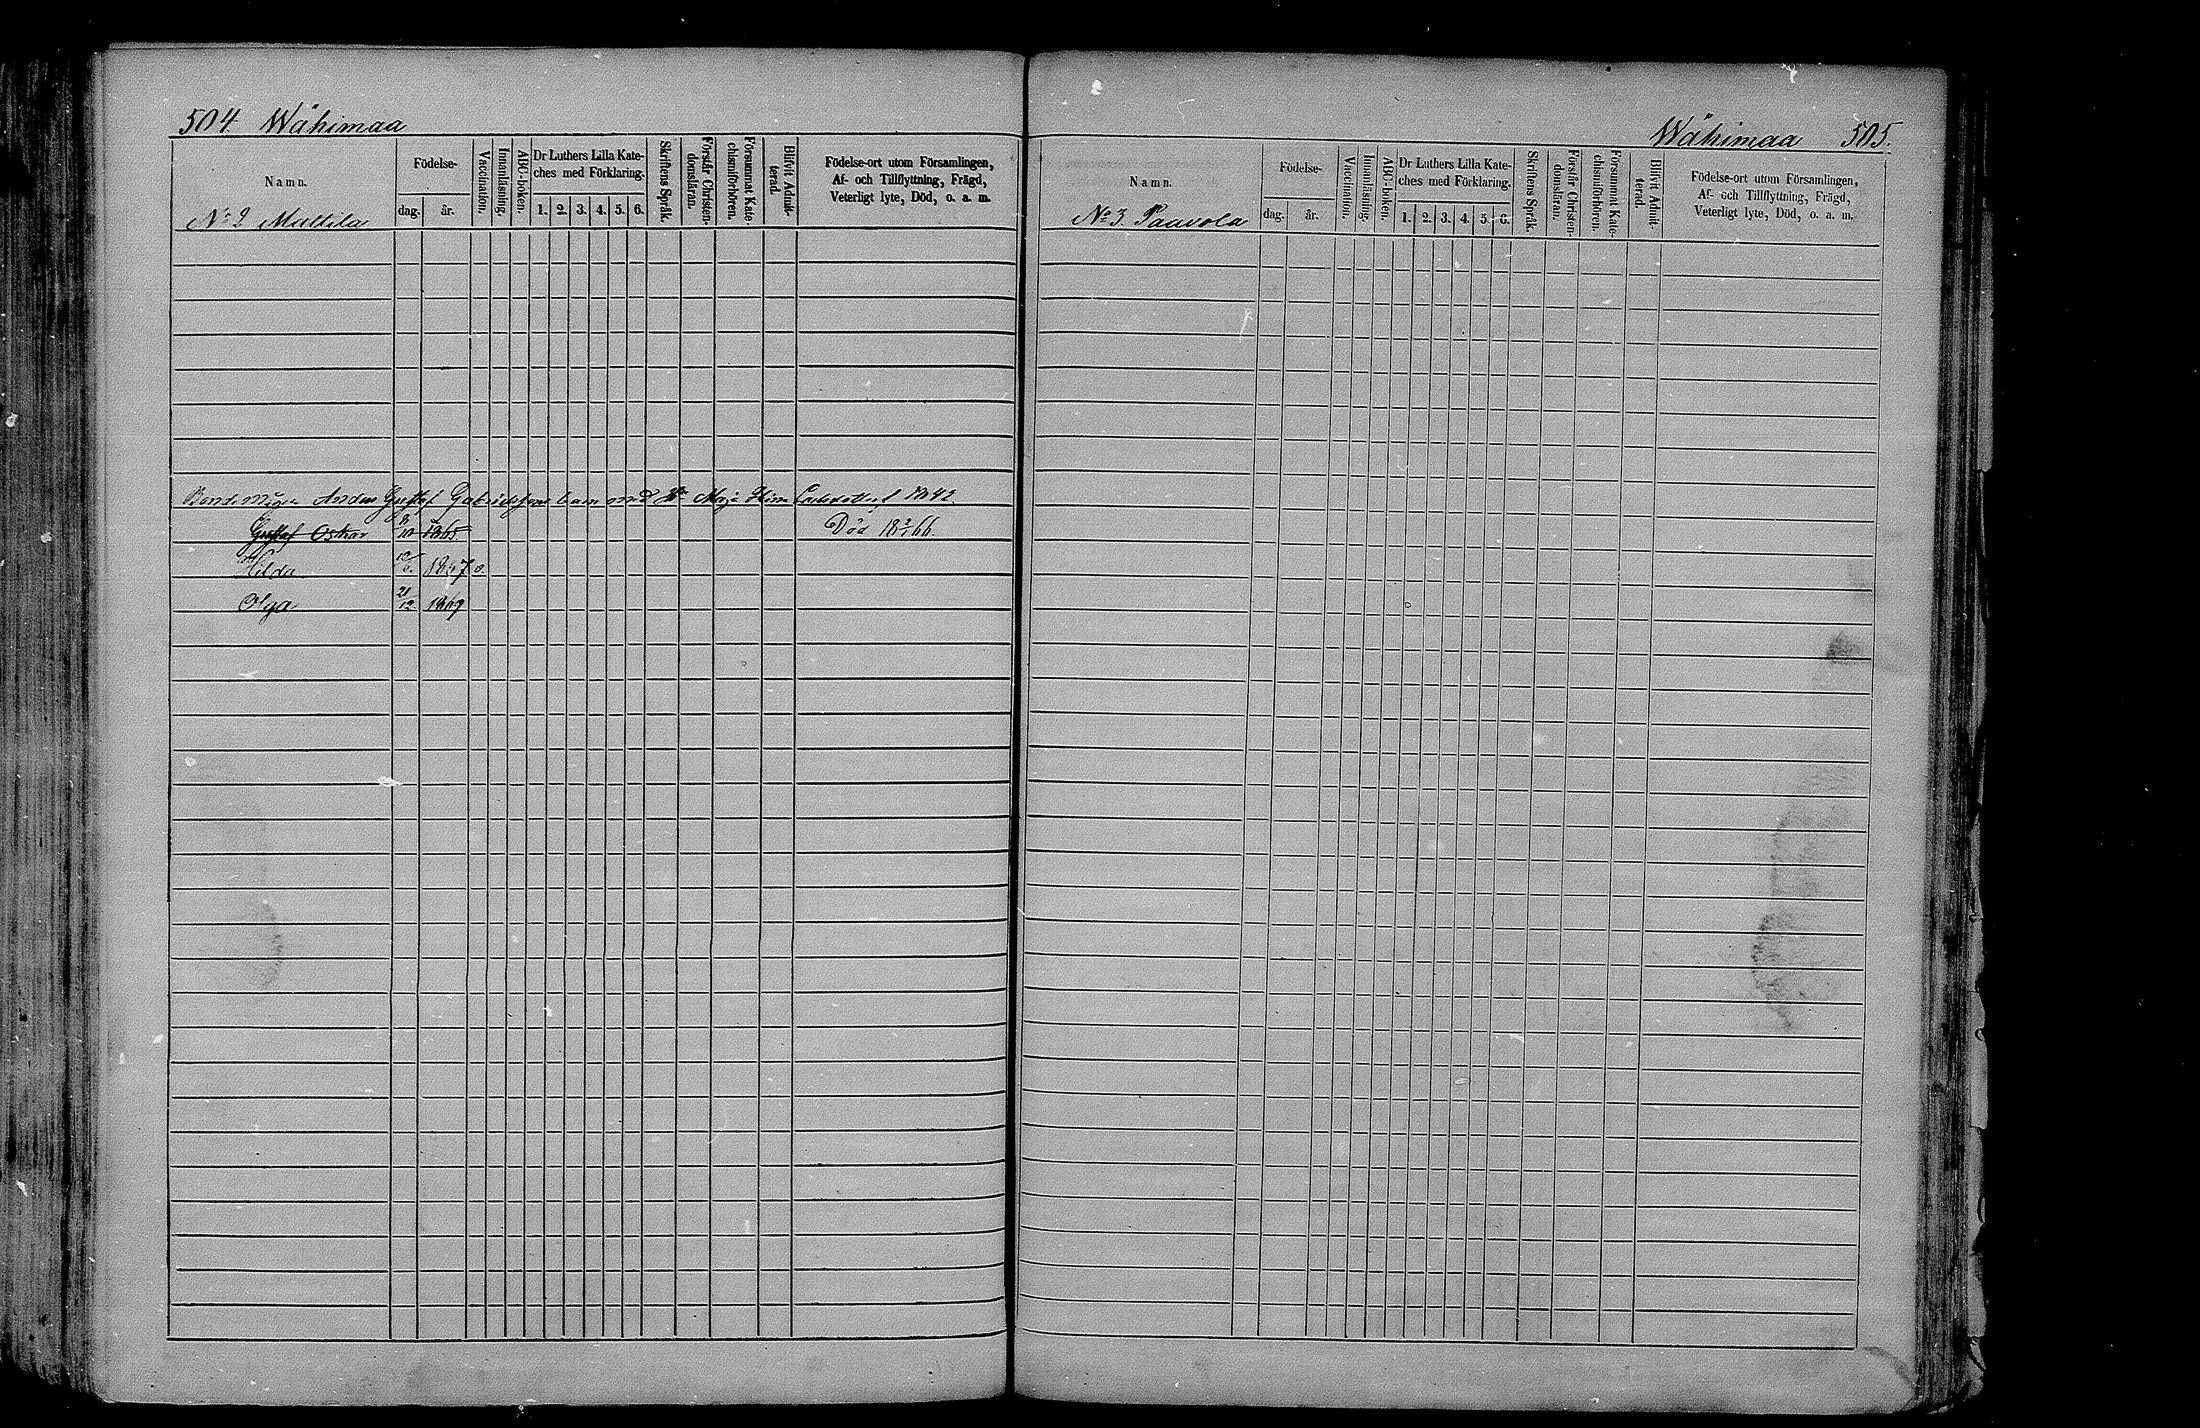 504. Wähimaa
Namn.
Födelse-
dag. år.
Vaccination.
Innanläsning.
ABC-boken.
Dr Luthers Lilla Kate-
ches med Förklaring.
1. 2. 3. 4. 5. 6.
Skriftens Språk.
Förstår Christen-
domsläran.
Försummat Kate-
chismiförhören.
Blifvit Admit-
terad.
Födelse-ort utom Församlingen,
Af- och Tillflyttning, Frägd,
Veterligt lyte, Död, o. a. m.
No 2 Mattila
Bonde Anders Gustaf barn med Maja 1842
Gustaf Oskar 10 1865 Död 18 2/1 66.
Hilda 1867 v.
Olga 21/12 1869
Wähimaa 505.
Namn.
Födelse-
dag. år.
Vaccination.
Innanläsning.
ABC-boken.
Dr Luthers Lilla Kate-
ches med Förklaring.
1. 2. 3. 4. 5. 6.
Skriftens Språk.
Förstår Christen-
domsläran.
Försummat Kate-
chismiförhören.
Blifvit Admit-
terad.
Födelse-ort utom Församlingen,
Af- och Tillflyttning, Frägd,
Veterligt lyte, Död, o. a. m.
No 3. Paavola